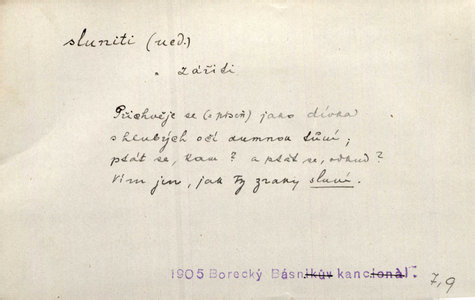 sluniti (ned.)
" zářiti
Přichvěje se (o píseň) jako dívka
s hlubých očí dumnou tůní;
ptát se, kam? a ptát se, odkud?
Vím jen, jak ty zraky sluní.
1905 Borecký Básníkův kancionál.
7,9